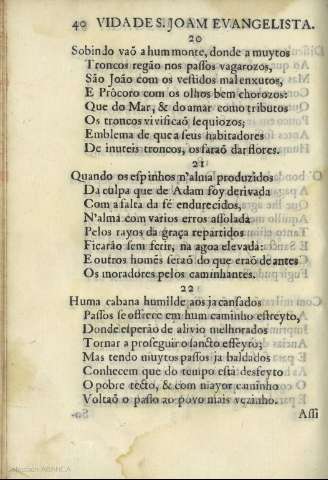 40 VIDA DE S. JOAM EVANGELISTA.
20
Sobindo vaõ a hum monte, donde a muytos
Troncos regão nos passos vagarozos,
São João com os vestidos mal enxutos,
E Pròcoro com os olhos bem chorozos:
Que do Mar, & do amar como tributos
Os troncos vivificaõ sequiozos;
Emblema de que a seus habitadores
De inuteis troncos, os faraõ dar flores.
21
Quando os espinhos n'alma produzidos
Da culpa que de Adam foy derivada
Com a falta da fé endurecidos,
N'alma com varios erros assolada
Pelos rayos da graça repartidos
Ficarão sem ferir, na agoa elevada:
E outros homẽs seraõ do que eraõ de antes
Os moradores pelos caminhantes.
22
Huma cabana humilde aos ja cansados
Passos se offrece em hum caminho estreyto,
Donde esperão de alivio melhorados
Tornar a proseguir o sancto effeyto;
Mas tendo muytos passos ja baldados
Conhecem que do tempo està desfeyto
O pobre tecto, & com mayor caminho
Voltaõ o passo ao povo mais vezinho.
Assi